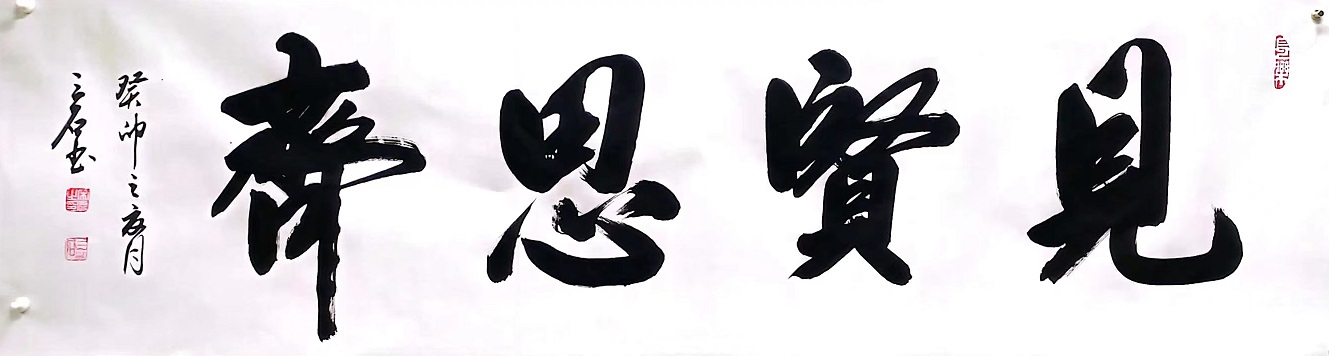 見賢思齊
癸卯之夏月
三石書